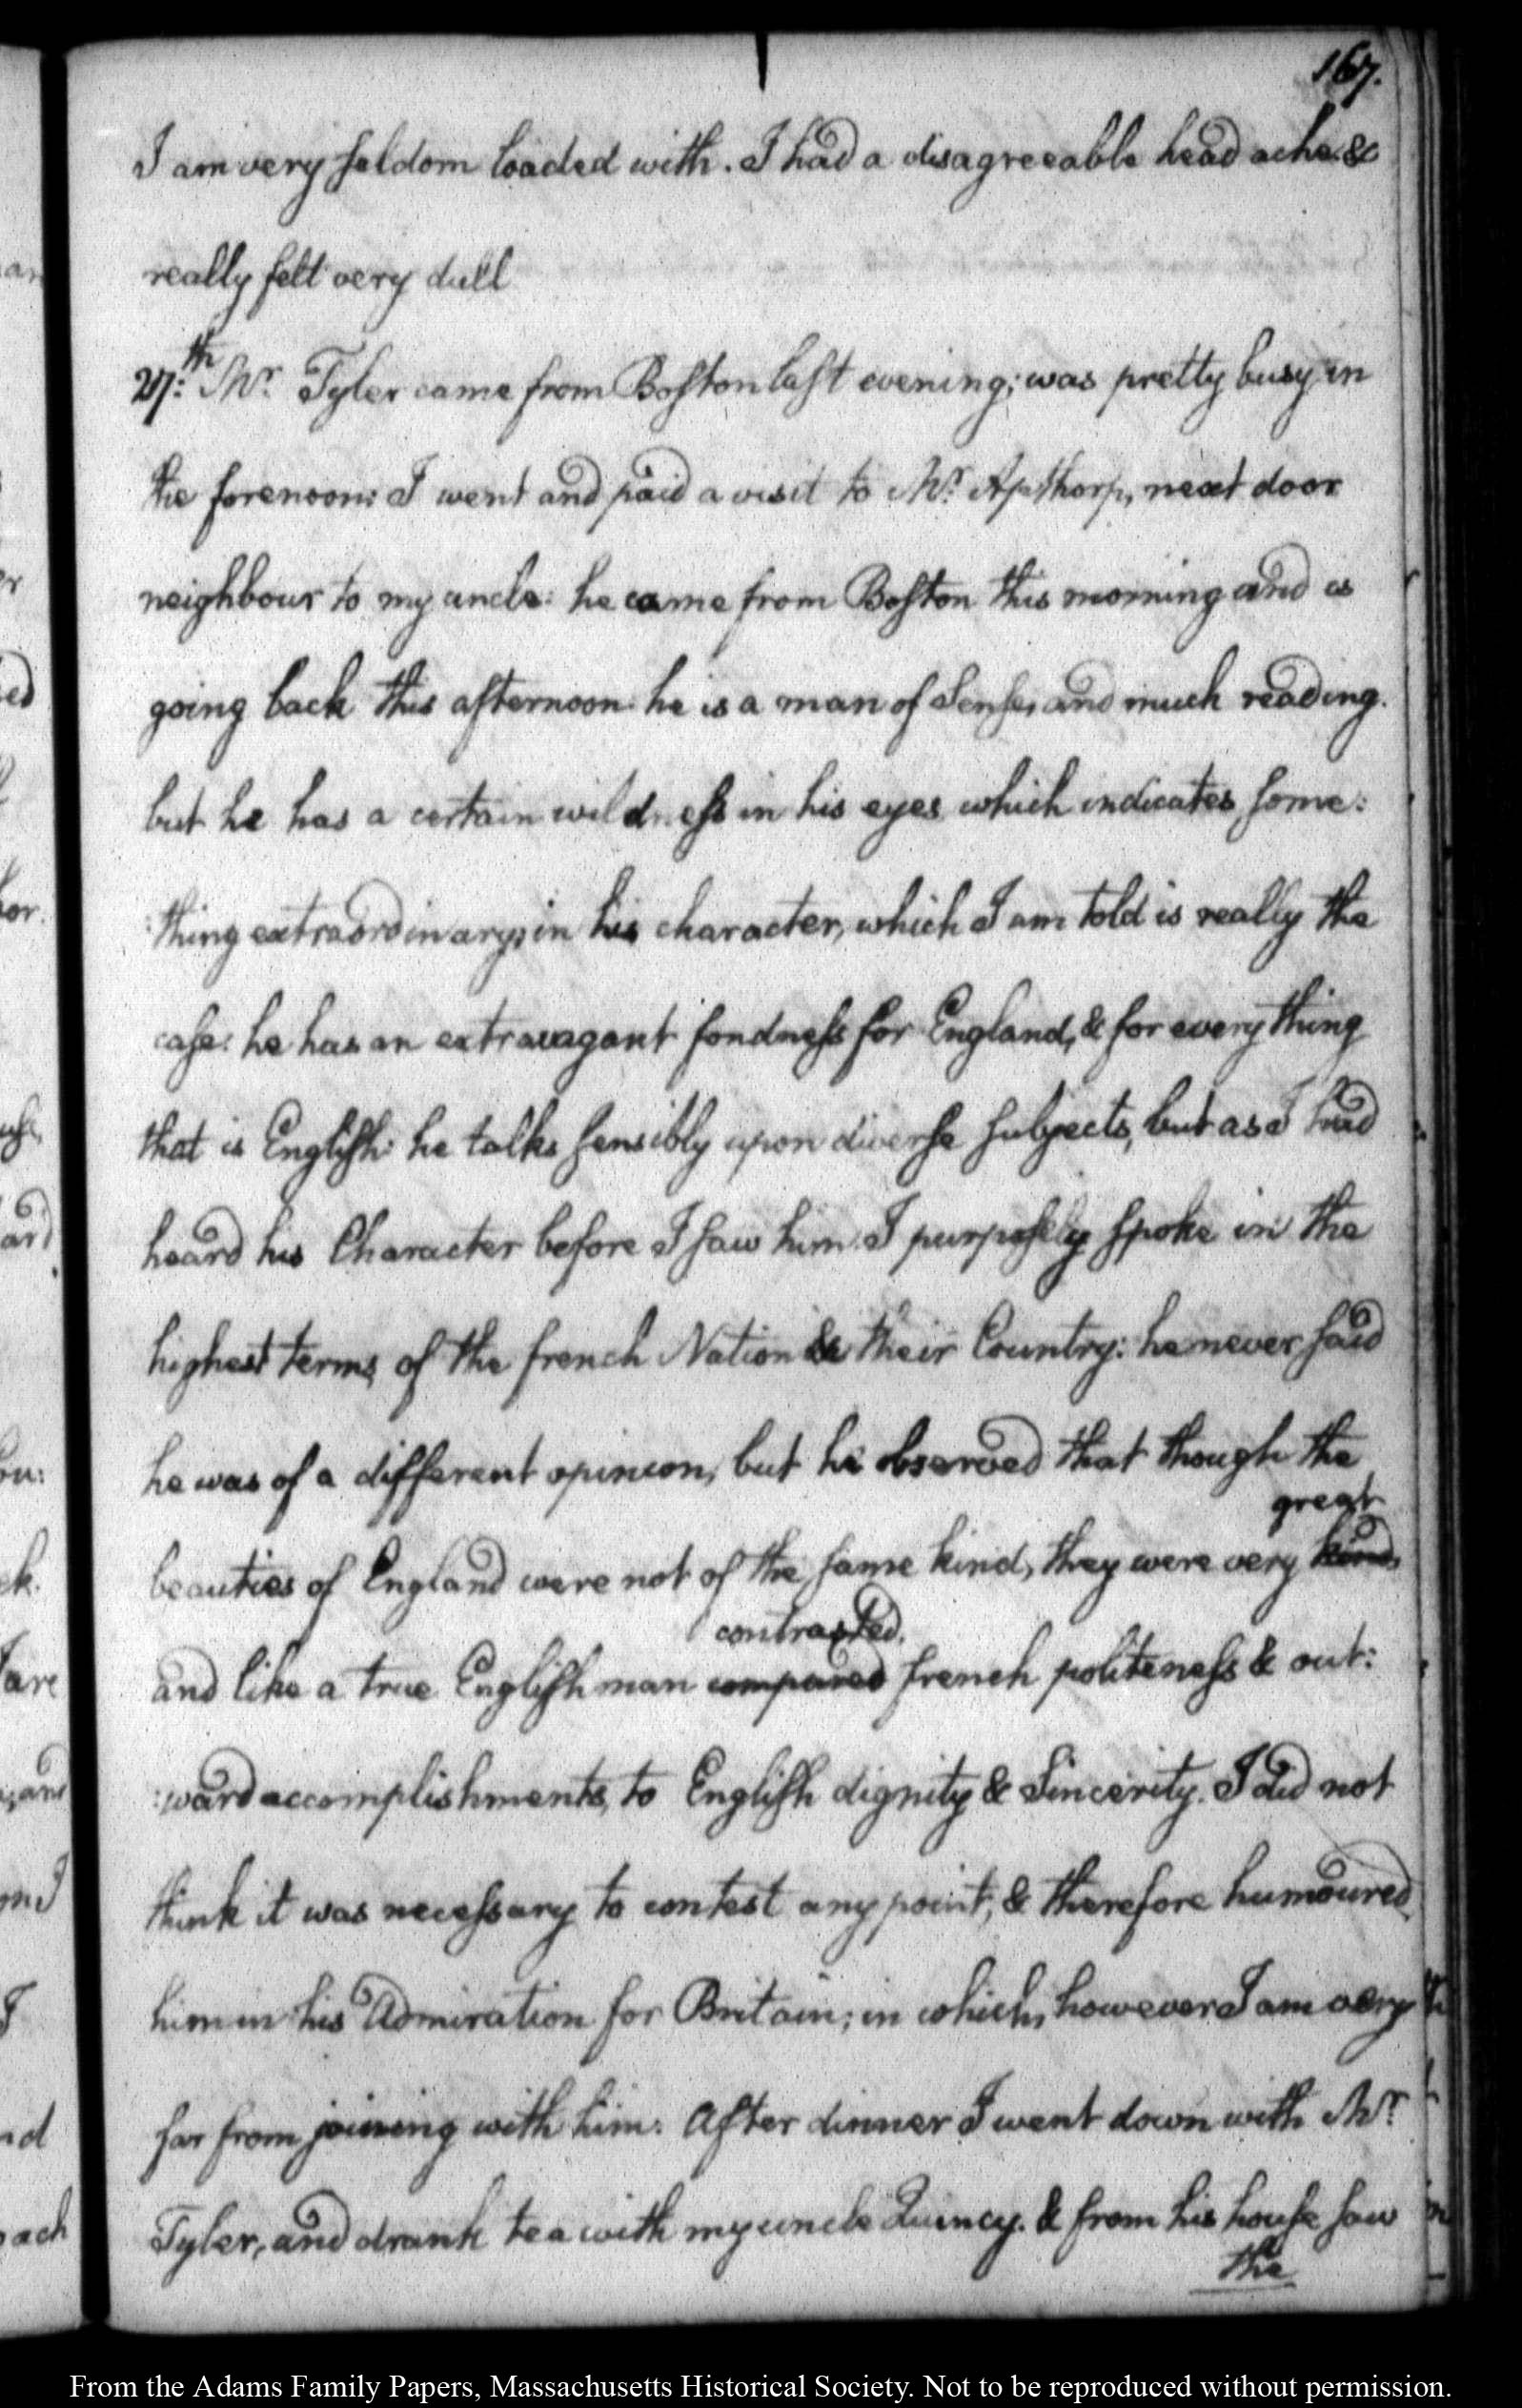 167.
I am very seldom loaded with. I had a disagreeable head ache &
really felt very dull
27:th Mr. Tyler came from Boston last evening; was pretty busy in
the forenoon: I went and paid a visit to Mr. Apthorp, next door
neighbour to my uncle: he came from Boston this morning and is
going back this afternoon. he is a man of Sense, and much reading.
but he has a certain wildness in his eyes which indicates some:
:thing extraordinary, in his character, which I am told is really the
case: he has an extravagant fondness for England, & for every thing
that is English: he talks sensibly upon diverse subjects, but as I had
heard his Character before I saw him. I purposely spoke in the
highest terms of the french Nation & their Country: he never said
he was of a different opinion, but he observed that though the
great
beauties of England were not of the same kind, they were very kind,
contrasted,
and like a true Englishman compared french politeness & out:
:ward accomplishments, to English dignity & Sincerity. I did not
think it was necessary to contest any point, & therefore humoured
him in his Admiration for Britain; in which, however I am very
far from joining with him. After dinner I went down with Mr.
Tyler, and drank tea with my uncle Quincy. & from his house saw
the
From the Adams Family Papers, Massachusetts Historical Society. Not to be reproduced without permission.